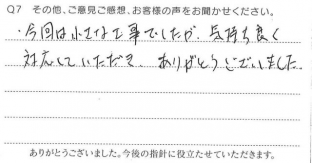 Q7 その他、ご意見ご感想、お客様の声をお聞かせください。
・今回は小さな工事でしたが、気持ち良く
対応していただき、ありがとうございました。
ありがとうございました。今後の指針に役立たせていただきます。